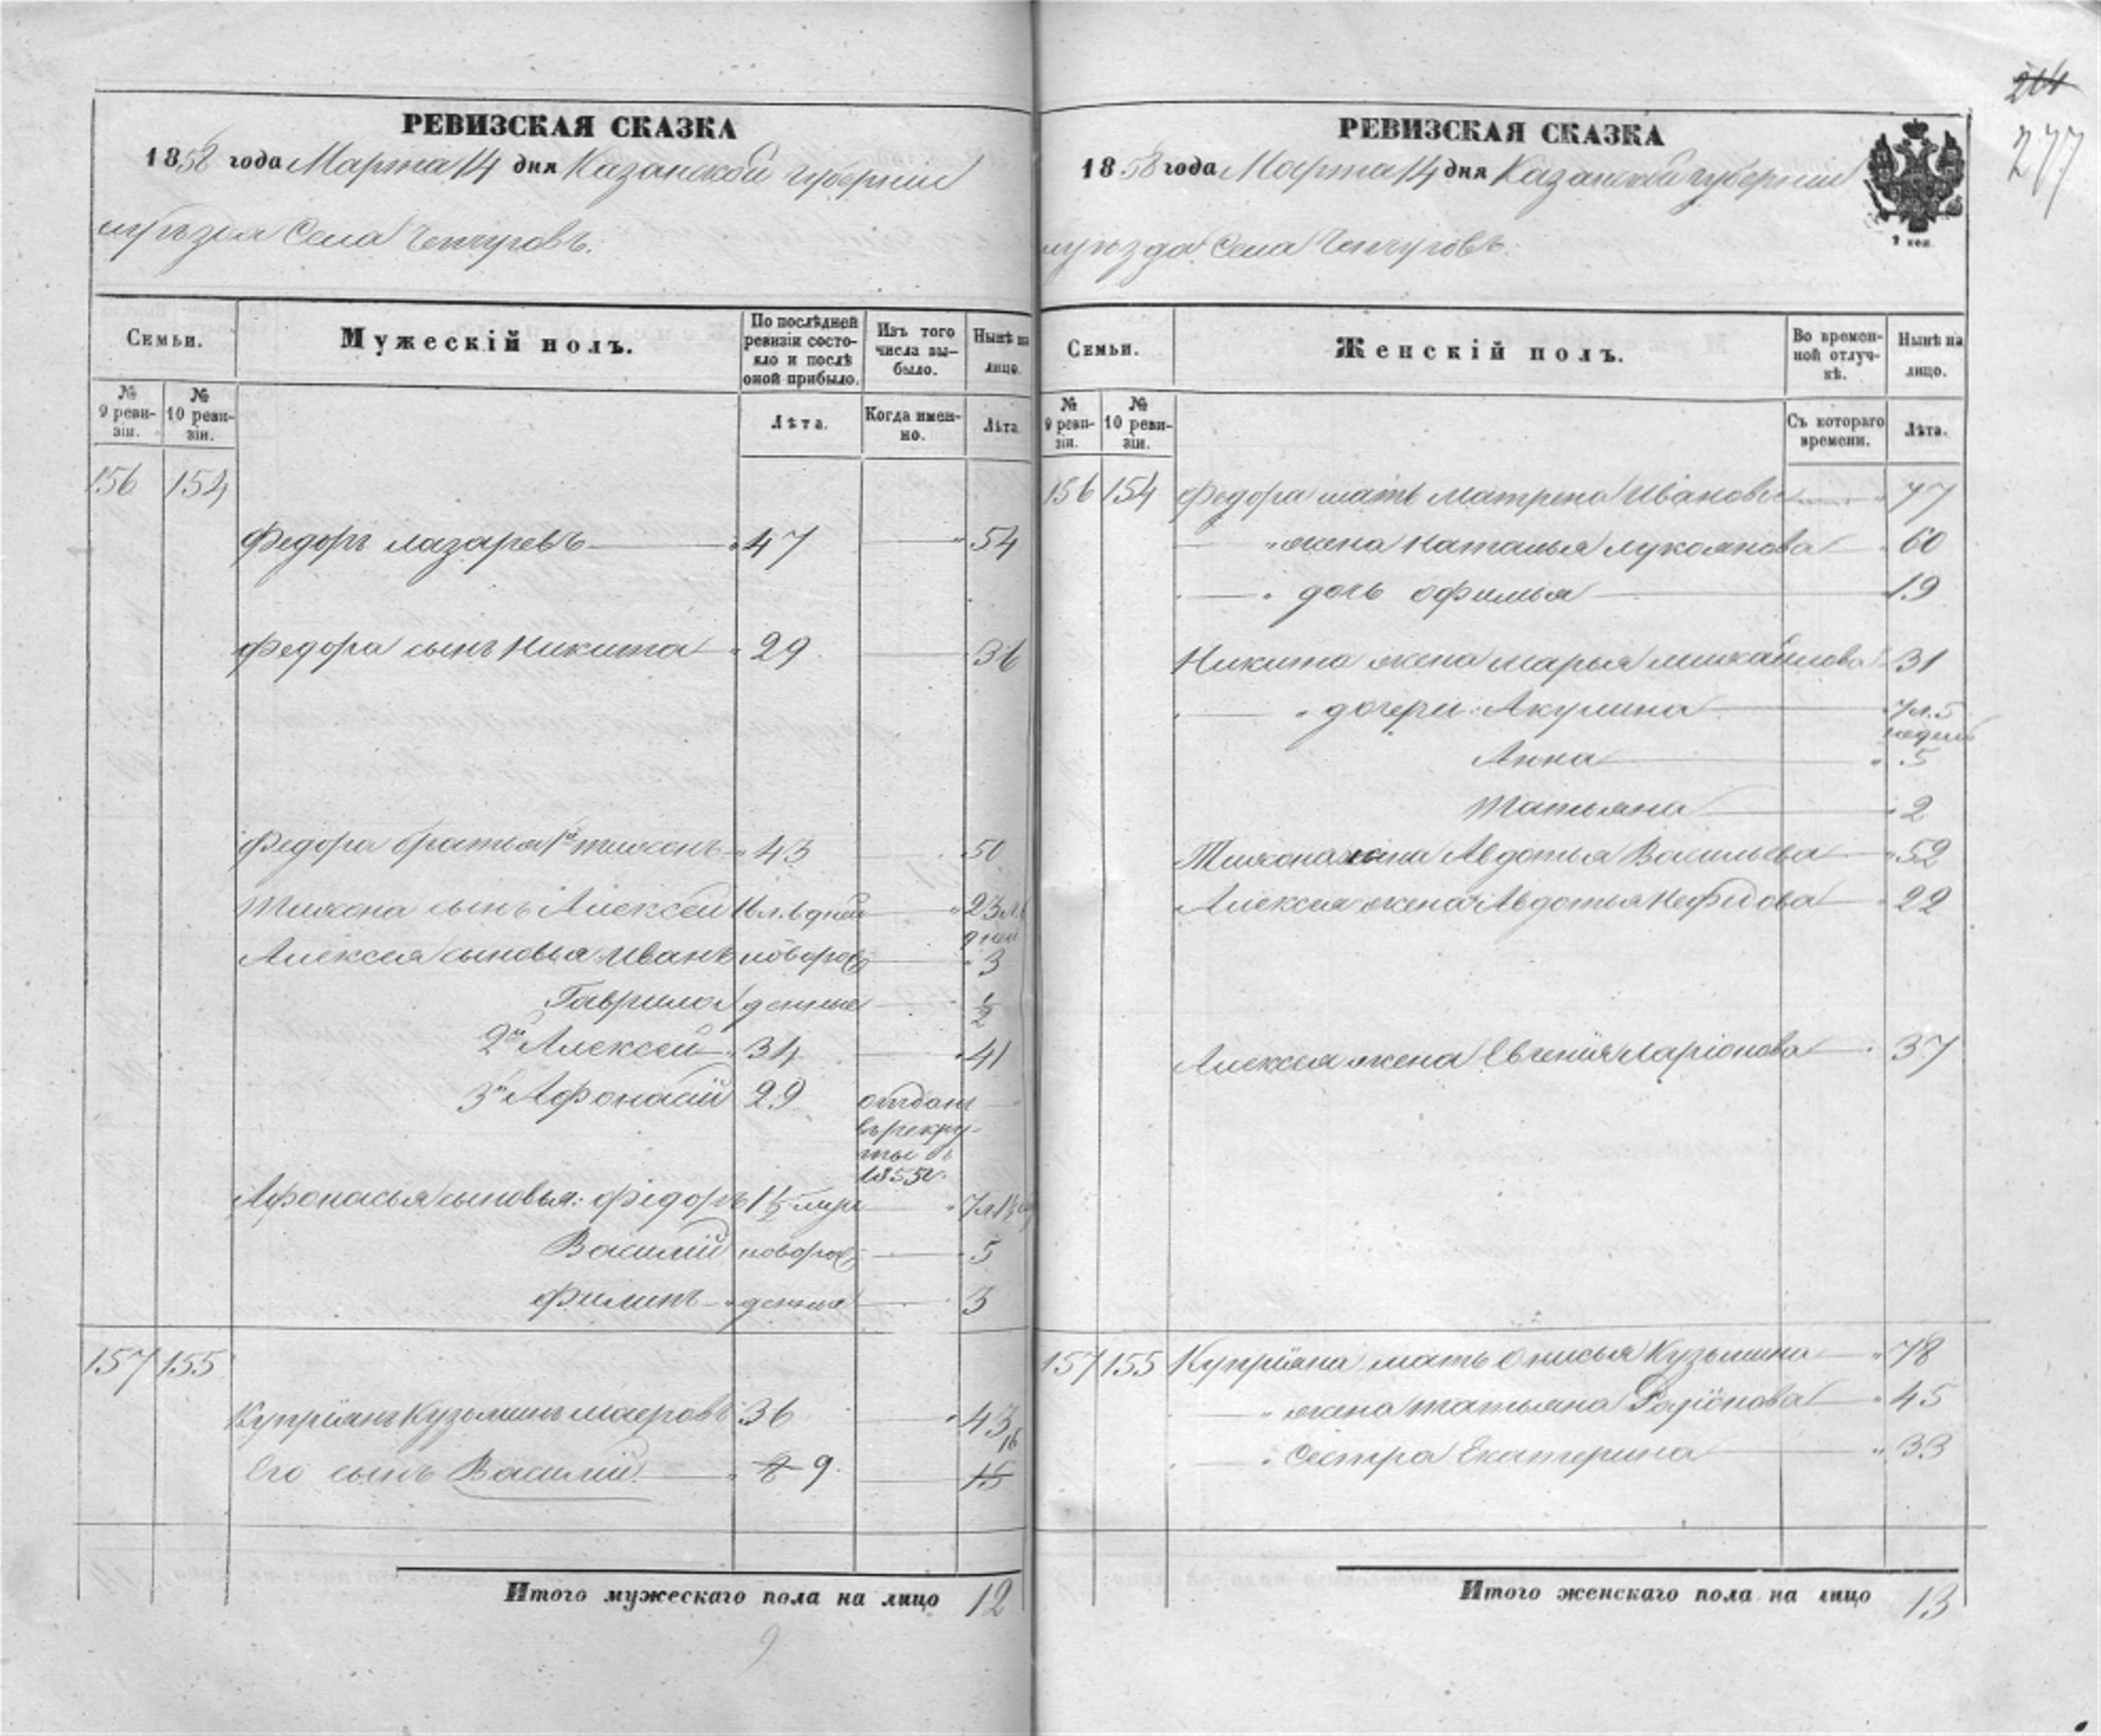 214
277
РЕВИЗСКАЯ СКАЗКА
1858 года Марта 14 дня Казанской губернiи
и уѣзда Села Чепчуговъ.
Семьи.
Мужескiй полъ.
По послѣдней ревизiи состояло и послѣ оной прибыло.
Изъ того числа выбыло.
Нынѣ на лицо.
№ 9 ревизiи.
№ 10 ревизiи.
Лѣта.
Когда именно.
Лѣта.
156 154
Федоръ Лазаревъ 47 54
Федора сынъ Никита 29 36
Федора братья 1й Тихонъ 43 50
Тихона сынъ Алексей 16 л. 6 дней 23 л. 6 дней
Алексея сыновья Иванъ новорож 3
Гаврила денные ½
2й Алексей 34 41
3й Афонасiй 29 отданъ въ рекруты въ 1855 г.
Афонасья сыновья: Федоръ 1½ мѣся 7 л. 1½
Василiй новорож 5
Филипъ денные 3
157 155
Купрiянъ Кузьминъ 36 43
16
Его сынъ Василiй 8 9. 15
Итого мужескаго пола на лицо 12
9
РЕВИЗСКАЯ СКАЗКА
1858 года Марта 14 дня Казанской губернiи
и уѣзда Села Чепчуговъ.
2 коп.
Семьи.
Женскiй полъ.
Во временной отлучкѣ.
Нынѣ на лицо.
№ 9 ревизiи.
№ 10 ревизiи.
Съ котораго времени.
Лѣта.
156 154 Федора мать Матрена Иванова 77
жена Наталья Лукоянова 60
дочь Офимья 19
Никита жена Марья Михайлова 31
дочери: Акулина 7 л. 5 недель
Анна 5
Татьяна 2
Тихона жена Авдотья Васильева 52
Алексея жена Авдотья Нефедова 22
Алексея жена Евгенiя Ларiонова 37
157 155 Купрiяна мать Онисья Кузьмина 78
жена Татьяна Родiонова 45
Сестра Екатерина 33
Итого женскаго пола на лицо 13